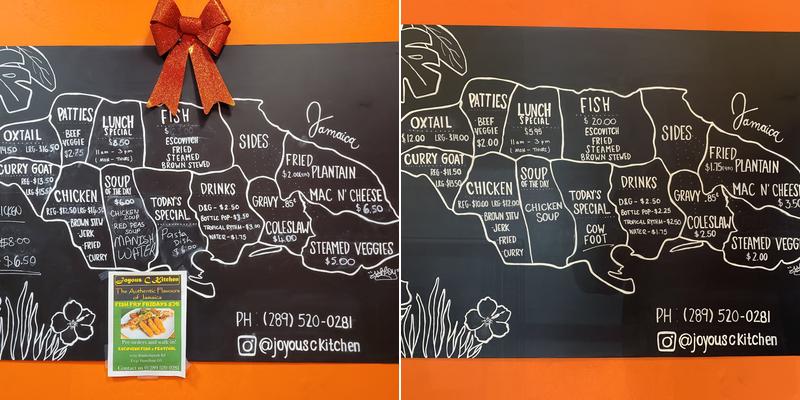 PATTIES
BEEF
VEGGIE
$2.75
LUNCH
SPECIAL
$8.50
11am - 3pm
(MON - THURS)
FISH
ESCOVITCH
FRIED
STEAMED
BROWN STEWED
SIDES
Jamaica
OXTAIL
LRG-$16.50
FRIED
PLANTAIN
CURRY GOAT
REG-$13.50
MAC N' CHEESE
$6.50
CHICKEN
REG-$12.50
BROWN STEW
JERK
FRIED
CURRY
SOUP
OF THE DAY
$6.00
CHICKEN
SOUP
RED PEAS
SOUP
MANISH
WATER
TODAY'S
SPECIAL
Pasta
Dish
DRINKS
D&G - $2.50
BOTTLE POP-$3.50
TROPICAL RYTHM-$3.50
WATER-$1.75
GRAVY .85¢
COLESLAW
$4.00
STEAMED VEGGIES
$5.00
$8.00
$6.50
Joyous C Kitchen
The Authentic Flavours
of Jamaica
FISH FRY FRIDAYS
Pre-orders and walk in!
PH: (289) 520-0281
@joyousckitchen
OXTAIL
$12.00 LRG-$14.00
PATTIES
BEEF
VEGGIE
$2.00
LUNCH
SPECIAL
$5.95
11am - 3pm
(MON - THURS)
FISH
$20.00
ESCOVITCH
FRIED
STEAMED
BROWN STEWED
SIDES
Jamaica
FRIED
PLANTAIN
CURRY GOAT
MAC N' CHEESE
$3.50
CHICKEN
REG-$10.00 LRG-$12.00
BROWN STEW
JERK
FRIED
CURRY
SOUP
OF THE DAY
CHICKEN
SOUP
TODAY'S
SPECIAL
COW
FOOT
DRINKS
D&G - $2.50
BOTTLE POP-$2.25
TROPICAL RYTHM-$2.50
WATER-$1.75
GRAVY .85¢
COLESLAW
$2.50
STEAMED VEGGIES
$2.00
PH: (289) 520-0281
@joyousckitchen